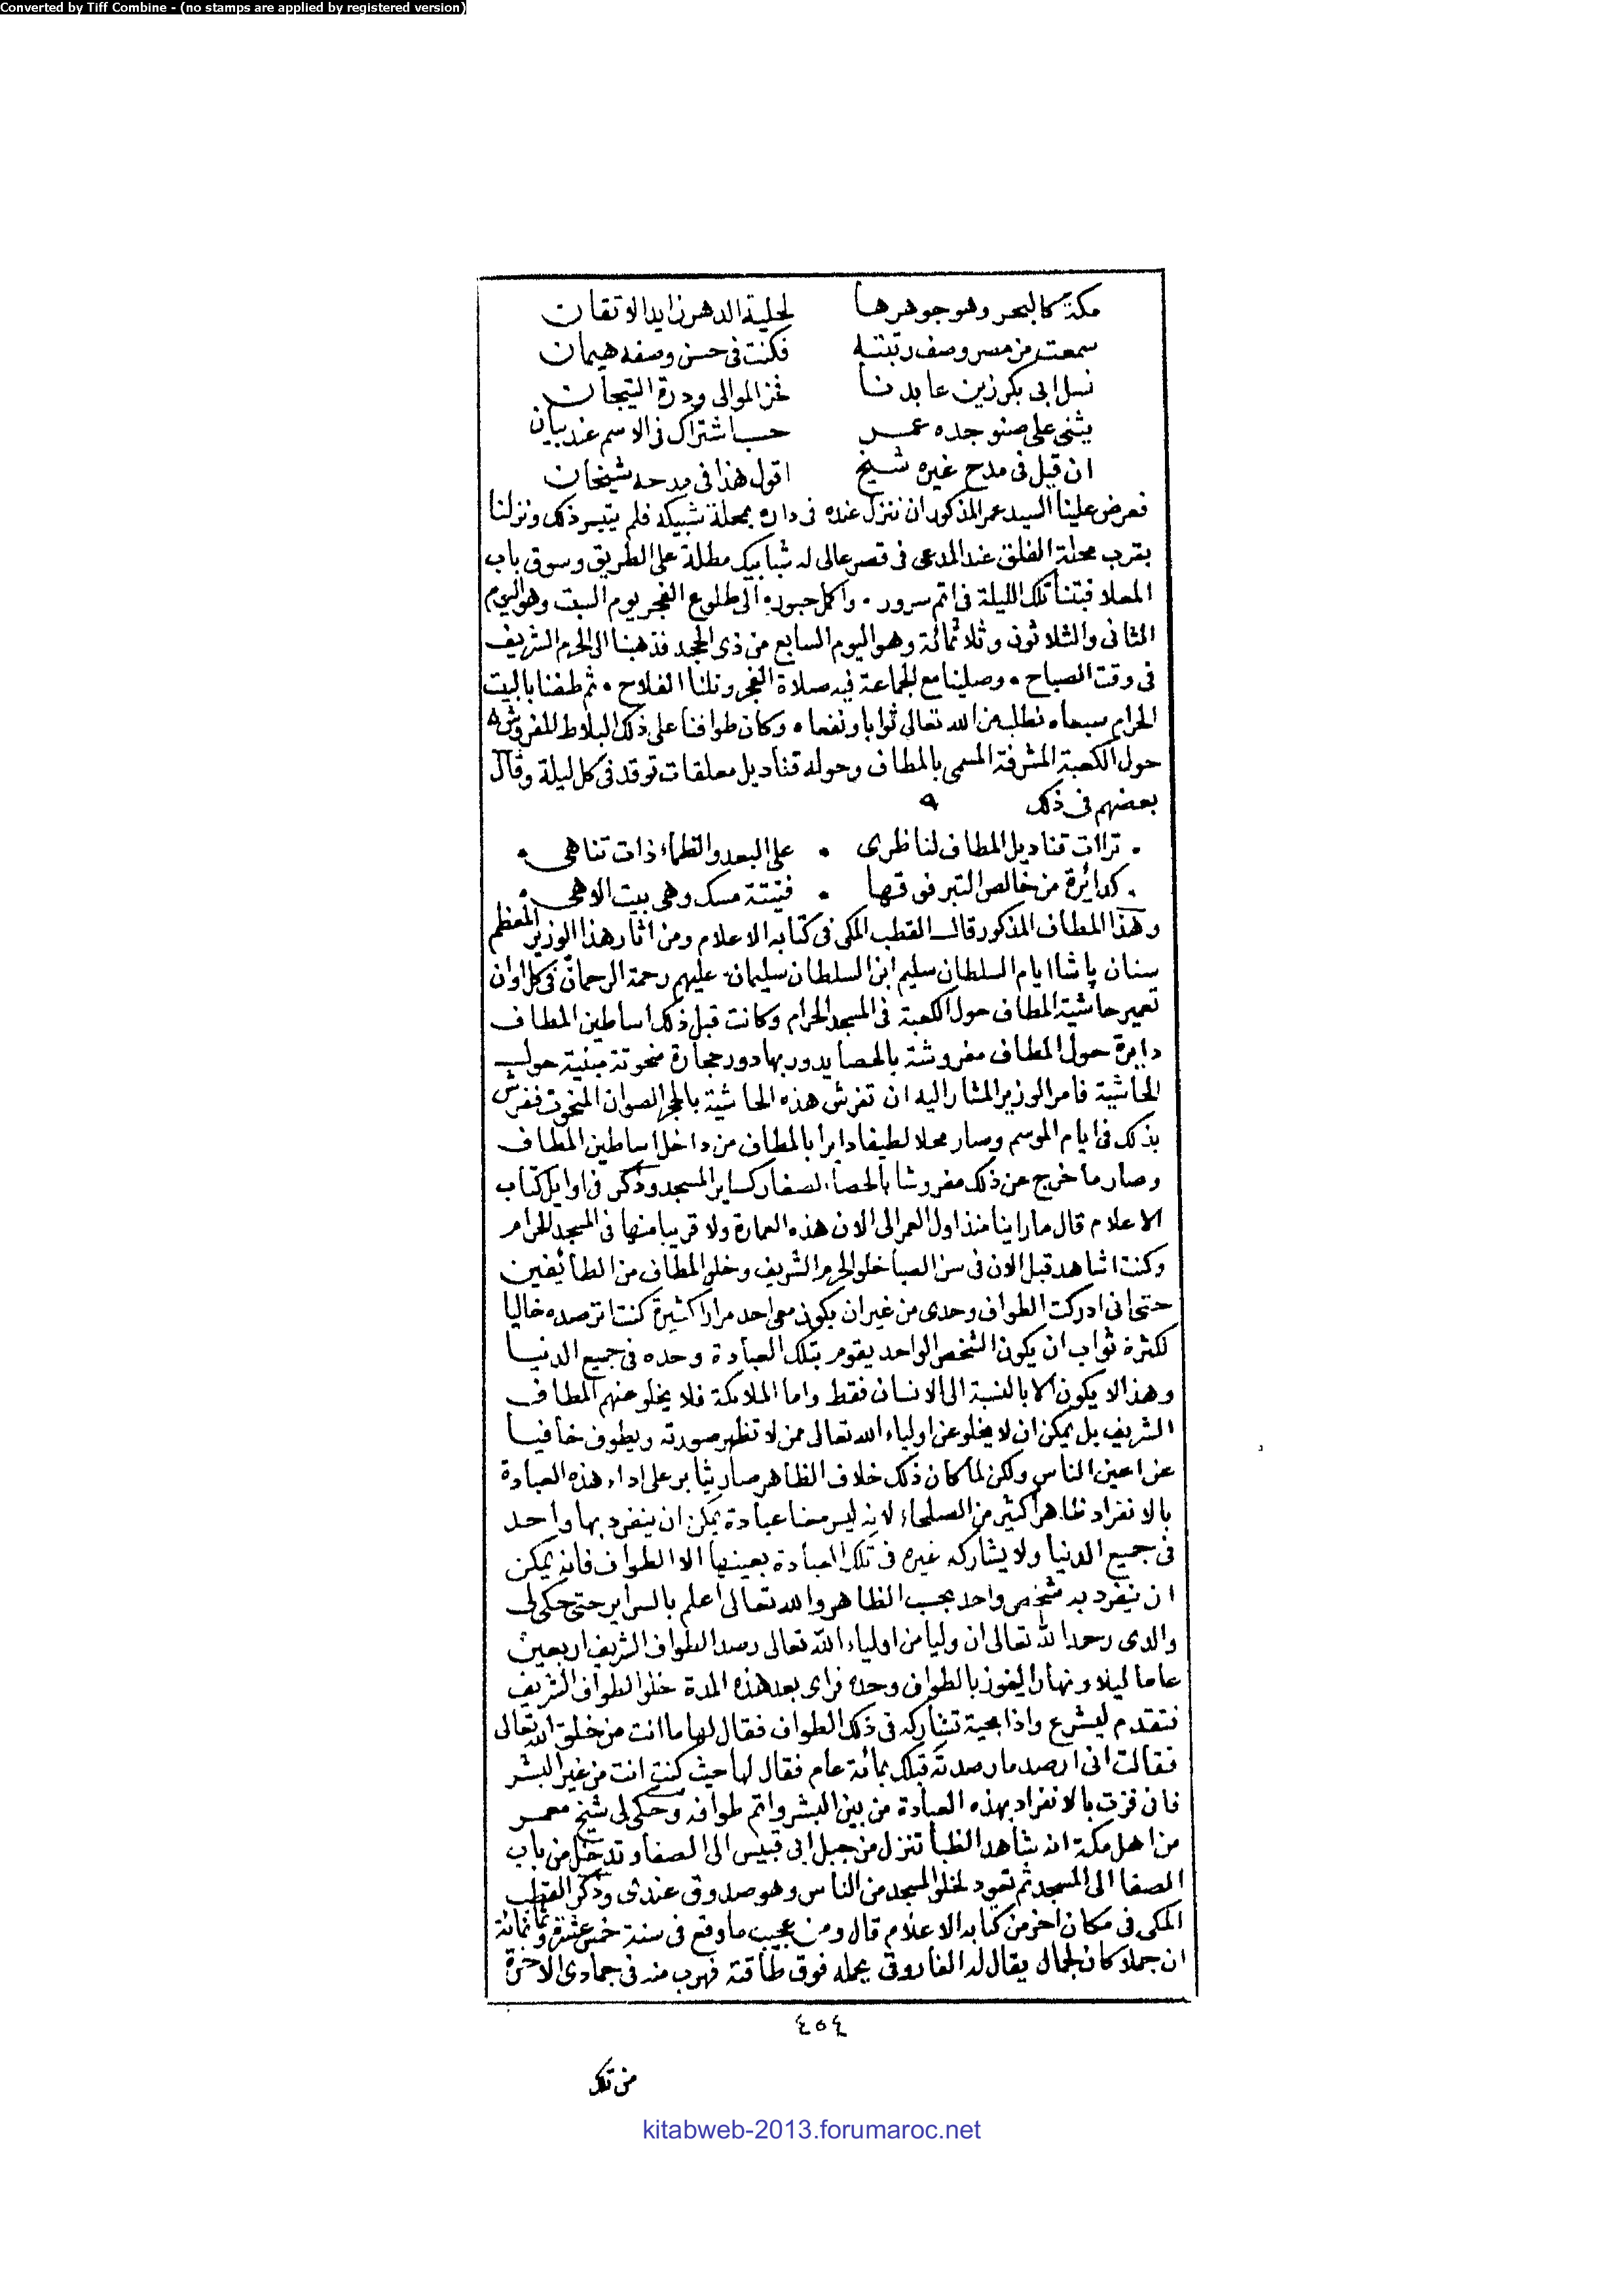 Converted by Tiff Combine - (no stamps are applied by registered version)
مكة كالبحر وهو جوهرها لحلية الدهر زايد الاتقان
سمعت من مصر وصف رتبته فكنت فى حسن وصفه هيمان
نسل ابى بكر زين عابدنا فخر الموالى ودرة التيجان
يثنى على صنو جده عمر حسب اشتراك فى الاسم عند بيان
ان قيل فى مدح غيره شيخ اقول هذا فى مدحه شيخان
فعرض علينا السيد عمر المذكور ان ننزل عنده فى داره بمحلة شبيكه فلم يتيسر ذلك ونزلنا
بقرب محلة الفلق عند المدعى فى قصر عالى له شبابيك مطلة على الطريق وسوق باب
المعلا فبتنا تلك الليلة فى اتم سرور ٠ واكمل حبور ٠ الى طلوع الفجر يوم السبت وهو اليوم
الثانى والثلاثون وثلاثمائة وهو اليوم السابع من ذى الحجة فذهبنا الى الحرم الشريف
فى وقت الصباح ٠ وصلينا مع الجماعة فيه صلاة الفجر ونلنا الفلاح ٠ ثم طفنا بالبيت
الحرام سبعا ٠ نطلب من الله تعالى ثوابا ونفعا ٠ وكان طوافنا على ذلك البلاط المفروش
حول الكعبة المشرفة المسمى بالمطاف وحوله قناديل معلقات توقد فى كل ليلة وقال
بعضهم فى ذلك
٠ تراات قناديل المطاف لناظرى ٠ على البعد والظلماء ذات تناهى ٠
٠ كدائرة من خالص التبر فوقها ٠ فتيتة مسك وهى بيت الاهى ٠
وهذا المطاف المذكور قال القطب المكى فى كتابه الاعلام ومن اثار هذا الوزير المعظم
سنان پاشا ايام السلطان سليم ابن السلطان سليمان عليهم رحمة الرحمان فى كل اوان
تعمير حاشية المطاف حول الكعبة فى المسجد الحرام وكانت قبل ذلك اساطين المطاف
دايرة حول المطاف مفروشة بالحصا يدور بها دور حجارة منحوتة مبنية حول
الحاشية فامر الوزير المشار اليه ان تفرش هذه الحاشية بالحجر الصوان المنحوت ففرش
بذلك فى ايام الموسم وصار محلا لطيفا دايرا بالمطاف من داخل اساطين المطاف
وصار ما خرج عن ذلك مفروشا بالحصا الصغار كساير المسجد وذكر فى اوايل كتاب
الاعلام قال ما راينا منذ اول العمر الى الان هذه العمارة ولا قريبا منها فى المسجد الحرام
وكنت اشاهد قبل الان فى سن الصبا خلو الحرم الشريف وخلو المطاف من الطائفين
حتى انى ادركت الطواف وحدى من غير ان يكون معى احد مرارا كثيرة كنت اترصده خاليا
لكثرة ثواب ان يكون الشخص الواحد يقوم بتلك العبادة وحده فى جميع الدنيا
وهذا لا يكون الا بالنسبة الى الانسان فقط واما الملائكة فلا يخلو عنهم المطاف
الشريف بل يمكن ان لا يخلو عن اولياء الله تعالى ممن لا تظهر صورته ويطوف خافيا
عن اعين الناس ولكن لما كان ذلك خلاف الظاهر صار يثابر على اداء هذه العبادة
بالانفراد ظاهرا كثير من الصلحاء لانه ليس معنا عبادة يمكن ان ينفرد بها واحد
فى جميع الدنيا ولا يشاركه غيره فى تلك العبادة بعينها الا الطواف فانه يمكن
ان ينفرد به شخص واحد بحسب الظاهر والله تعالى اعلم بالسراير حتى حكى لى
والدى رحمه الله تعالى ان وليا من اولياء الله تعالى رصد الطواف الشريف اربعين
عاما ليلا ونهارا ليفوز بالطواف وحده فراى بعد هذه المدة خلو الطواف الشريف
فتقدم ليشرع واذا بحية تشاركه فى ذلك الطواف فقال لها ما انت من خلق الله تعالى
فقالت انى ارصد ما رصدته قبلك بمائة عام فقال لها حيث كنت انت من غير البشر
فانى فزت بالانفراد بهذه العبادة من بين البشر واتم طوافه وحكى لى شيخ معمر
من اهل مكة انه شاهد الظبا تنزل من جبل ابى قبيس الى الصفا وتدخل من باب
الصفا الى المسجد ثم تعود لخلو المسجد من الناس وهو صدوق عندى وذكر القطب
المكى فى مكان اخر من كتابه الاعلام قال ومن عجيب ما وقع فى سنة خمس عشرة وثمانمائة
ان جملا كان لجمال يقال له الفاروقى يحمله فوق طاقته فهرب منه فى جمادى الاخرة
٤٥٤
من تلك
kitabweb-2013.forumaroc.net